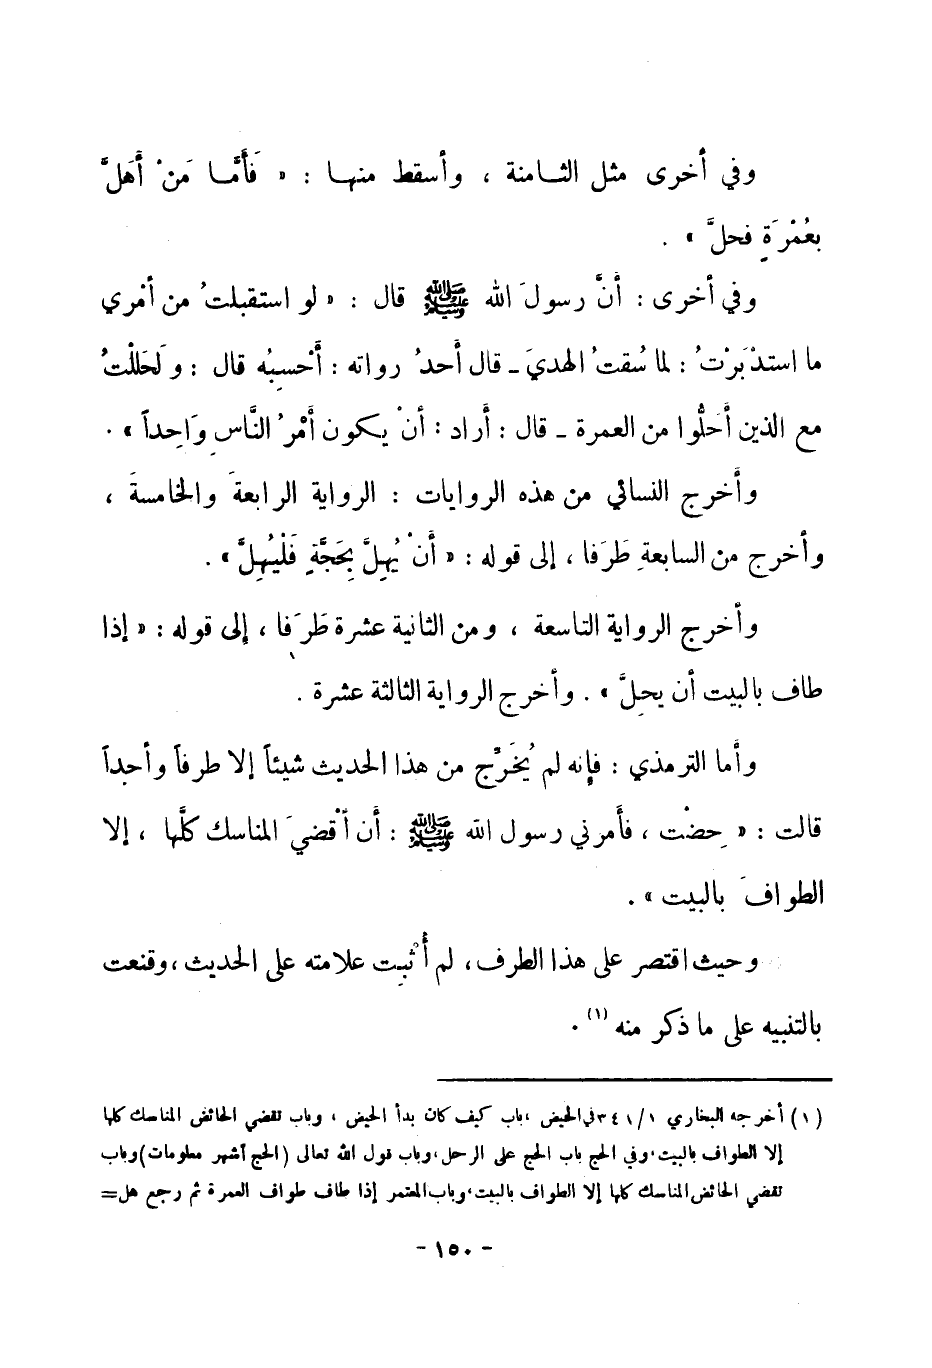 وفي أخرى مثل الثـامنة ، وأسقط منهـا : « فَأَمَّـا مَنْ أَهَلَّ
بعُمْرَةٍ فحلَّ » .
وفي أخرى : أنَّ رسولَ الله ﷺ قال : « لو استقبلتُ من أمْري
ما استدْبَرْتُ : لما سُقتُ الهديَ ـ قال أحدُ رواته : أَحْسِبُه قال : وَلَحَلَلْتُ
مع الذين أَحَلُّوا من العمرة ـ قال : أَراد : أنْ يكون أَمْرُ النَّاسِ وَاحِداً » .
وأَخرج النسائي من هذه الروايات : الرواية الرابعةَ والخامسةَ ،
وأخرج من السابعةِ طَرَفا ، إلى قوله : « أَنْ يُهِلَّ بِحَجَّةٍ فَلْيُهِلَّ » .
وأخرج الرواية التاسعة ، ومن الثانية عشرة طَرَفا ، إلى قوله : « إذا
طاف بالبيت أن يحِلَّ » . وأخرج الرواية الثالثة عشرة .
وأَما الترمذي : فإنه لم يُخَرِّج من هذا الحديث شيئاً إلا طرفاً وأحداً
قالت : « حِضْت ، فأَمرني رسول الله ﷺ : أن أَقْضيَ المناسك كلَّها ، إلا
الطوافَ بالبيت » .
وحيث اقتصر على هذا الطرف، لم أُثبِت علامته على الحديث ، وقنعت
بالتنبيه على ما ذكر منه (١) .
(١) أخرجه البخاري ٣٤١/١ في الحيض ، باب كيف كان بدأ الحيض ، وباب تقضي الحائض المناسك كلها
إلا الطواف بالبيت، وفي الحج باب الحج على الرحل، وباب قول الله تعالى (الحج أشهر معلومات) وباب
تقضي الحائض المناسك كلها إلا الطواف بالبيت، وباب المعتمر إذا طاف طواف العمرة ثم رجع هل=
- ١٥٠ -